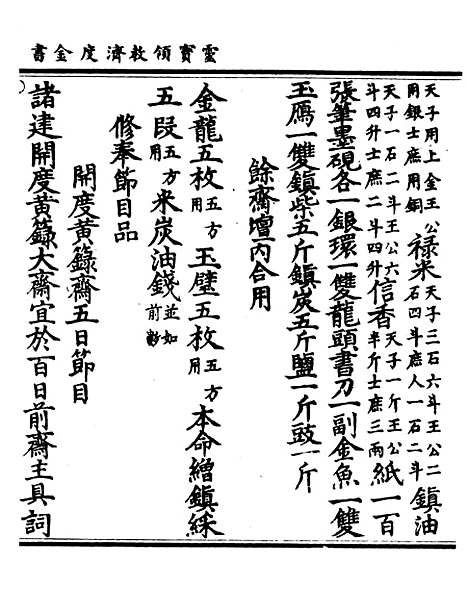 靈寶領教濟度金書
天子用上金王公用銀士庶用銅祿米天子三石六斗王公二石四斗庶人一石二斗鎮油
天子一石二斗王公六斗四升士庶二斗四升信香天子一斤王公半斤士庶三兩紙一百
張筆墨硯各一銀環一雙龍頭書刀一副金魚一雙
玉鴈一雙鎮柴五斤鎮炭五斤鹽一斤豉一斤
餘齋壇內合用
金龍五枚五方用玉璧五枚五方用本命繒鎮綵
五段五方用米炭油錢並如前數
修奉節目品
開度黃籙齋五日節目
諸建開度黃籙大齋宜於百日前齋主具詞